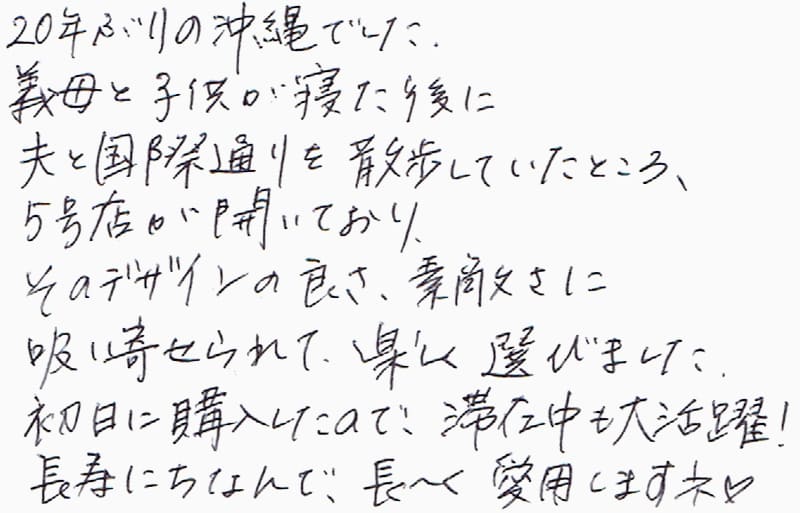 20年ぶりの沖縄でした.
義母と子供が寝た後に
夫と国際通りを散歩していたところ、
5号店が開いており、
そのデザインの良さ、素敵さに
吸い寄せられて、楽しく選びました.
初日に購入したので、滞在中も大活躍!
長寿にちなんで、長〜く愛用しますネ♡